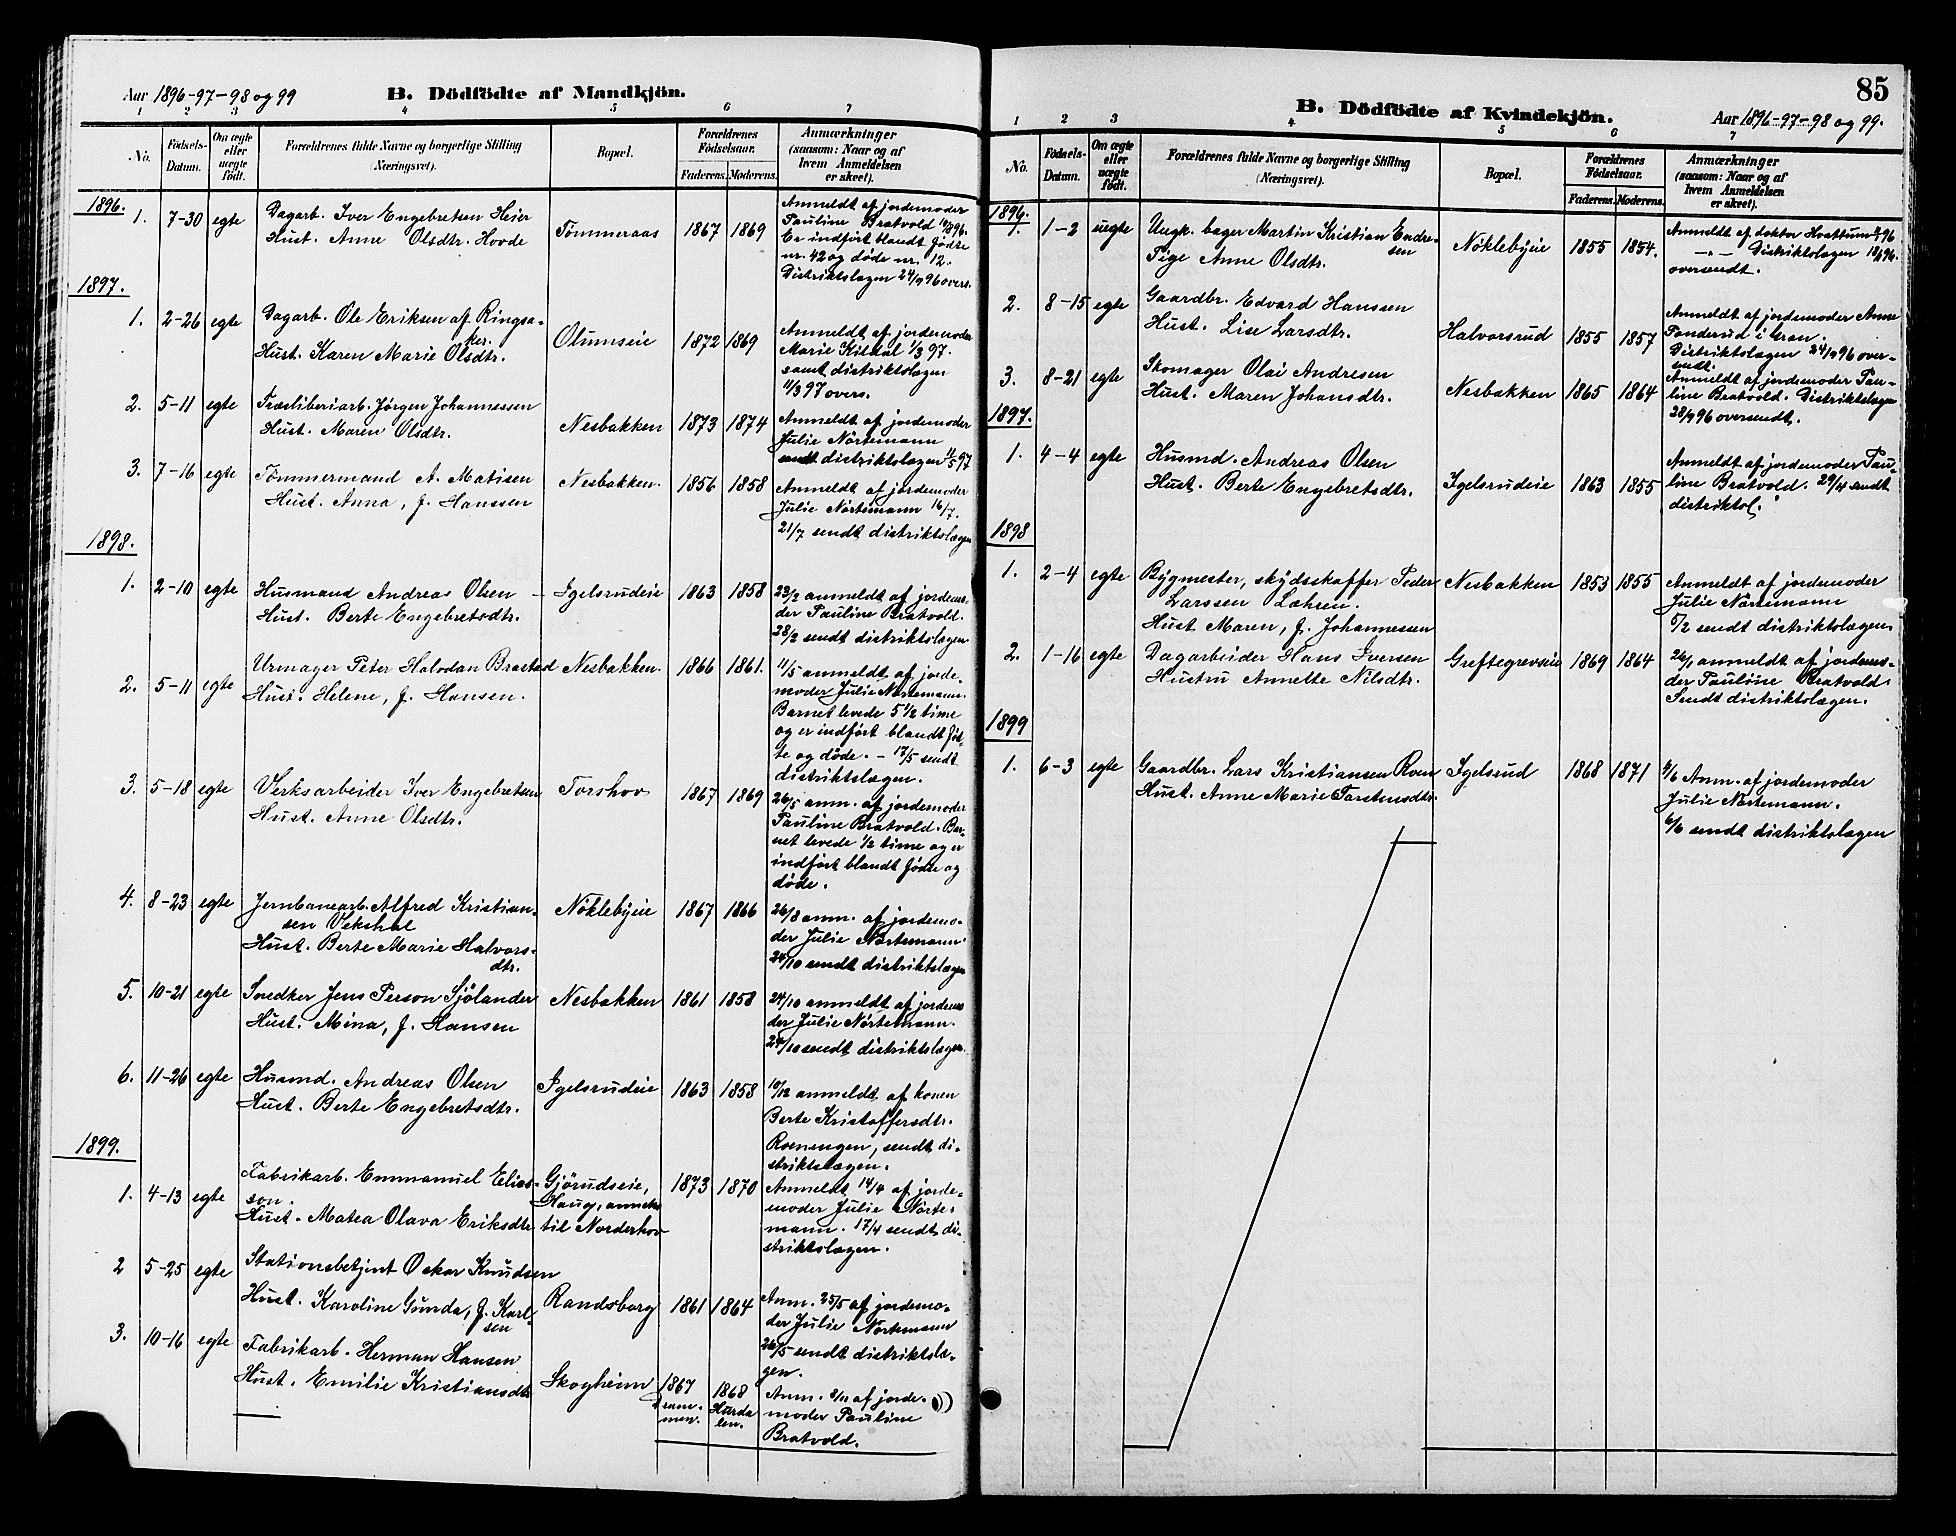 Aar 1896-97-98 og 99
B. Dödfödte af Mandkjön.
1 2 3 4 5 6 7
No. Födsels-Datum. Om ægte eller uægte födt. Forældrenes fulde Navne og borgerlige Stilling (Næringsvei). Bopæl. Forældrenes Födselsaar. Faderens. Moderens. Anmærkninger (saasom: Naar og af hvem Anmeldelsen er skeet).
1896.
1. 7-30 egte Dagarb. Iver Engebretsen Heier
Hust. Anne Olsdtr. Hovde
Tömmeraas 1867 1869
Anmeldt af jordemoder
Pauline Bratvold 10/8 96.
Er indfört blandt födte
nr. 42 og döde nr. 12.
Distriktslægen 24/9 96 overs.
1897.
1. 2-26 egte Dagarb. Ole Eriksen af Ringsa-
ker.
Hust. Karen Marie Olsdtr.
Olumseie 1872 1869
Anmeldt af jordemoder
Marie Kilskol 1/3 97.
samt distriktslægen
11/3 97 overs.
2. 5-11 egte Træsliberiarb. Jörgen Johannessen
Hust. Maren Olsdtr.
Nesbakken 1873 1874
Anmeldt af jordemoder
Julie Nörtemann
sendt distriktslægen 11/5 97
3. 7-16 egte Tömmermand A. Matisen
Hust. Anna, f. Hanssen
Nesbakken. 1856 1858
Anmeldt af jordemoder
Julie Nörtemann 16/7.
21/7 sendt distriktslægen
1898.
1. 2-10 egte Husmand Andreas Olsen
Hust. Berte Engebretsdtr.
Igelsrudeie 1863 1858
22/2 anmeldt af jordemo-
der Pauline Bratvold.
28/2 sendt distriktslægen
2. 5-11 egte Urmager Peter Halvdan Brastad
Hust. Helene, f. Hansen.
Nesbakken. 1866 1861.
11/5 anmeldt af jorde-
moder Julie Nörtemann.
Barnet levede 5 1/2 time
og er indfört blandt föd-
te og döde. - 17/5 sendt
distriktslægen.
3. 5-18 egte Verksarbeider Iver Engebretsen
Hust. Anne Olsdtr.
Torshov 1867 1869
26/5 anm. af jordemoder
Pauline Bratvold. Bar-
net levede 1/2 time og er
indfört blandt födte og
döde.
4. 8-23 egte Jernbanearb. Alfred Kristian-
sen Vekshal
Hust. Berte Marie Halvors-
dtr.
Nöklebyeie 1867 1866
26/8 anm. af jordemo-
der Julie Nörtemann.
24/10 sendt distriktslægen
5. 10-21 egte Snedker Jens Person Sjölander
Hust. Mina, f. Hansen
Nesbakken 1861 1858
24/10 anmeldt af jordemo
der Julie Nörtemann.
24/10 sendt distriktslægen.
6. 11-26 egte Husmd. Andreas Olsen
Hust. Berte Engebretsdtr.
Igelsrudeie 1863 1858
10/12 anmeldt af konen
Berte Kristoffersdtr.
Roenengen, sendt di-
striktslægen.
1899.
1. 4-13 egte Fabrikarb. Emmanuel Elias-
son.
Hust. Matea Olava Eriksdtr
Gjörudseie,
Haug, anneks
til Norderhov
1873 1870
Anmeldt 14/4 af jorde-
moder Julie Nörte-
mann. 17/4 sendt di-
striktslægen.
2 5-25 egte Stationsbetjent Oskar Knudsen
Hust. Karoline Gunda, f. Karl-
sen
Randsborg 1861 1864
Anm. 25/5 af jordemo-
der Julie Nörtemann
26/5 sendt distriktslæ-
gen.
3. 10-16 egte Fabrikarb. Herman Hansen
Hust. Emilie Kristiansdtr
Skogheim 1867
Dram-
men.
1868
Hurda
len.
Anm. 8/11 af jorde-
moder Pauline
Bratvold.
85
B. Dödfödte af Kvindekjön.
Aar 1896-97-98 og 99.
1 2 3 4 5 6 7
No. Födsels-Datum. Om ægte eller uægte födt. Forældrenes fulde Navne og borgerlige Stilling (Næringsvei). Bopæl. Forældrenes Födselsaar. Faderens. Moderens. Anmærkninger (saasom: Naar og af hvem Anmeldelsen er skeet).
1896.
1. 1-2 uegte Ungk. bager Martin Kristian Endre-
sen
Pige Anne Olsdtr.
Nöklebyeie 1855 1854.
Anmeldt af doktor Hvattum
-"- Distriktslægen
oversendt.
2. 8-15 egte Gaardbr. Edvard Hanssen
Hust. Lise Larsdtr.
Halvorsrud 1855 1857
Anmeldt af jordemoder Anne
Tanderud i Gran.
Distriktslægen 24/9 96 over-
sendt.
3. 8-21 egte Skomager Olai Andresen
Hust. Maren Johansdtr.
Nesbakken 1865 1864
Anmeldt af jordemoder Pau-
line Bratvold. Distriktslægen
28/9 96 oversendt.
1897.
1. 4-4 egte Husmd. Andreas Olsen
Hust. Berte Engebretsdtr.
Igelsrudeie 1863 1855
Anmeldt af jordemoder Pau-
line Bratvold. 29/4 sendt
distriktsl.
1898
1. 2-4 egte Bygmester, skydsskaffer Peder
Larssen Læhren.
Hust. Maren, f. Johannessen
Nesbakken 1853 1855
Anmeldt af jordemoder
Julie Nörtemann
5/2 sendt distriktslægen.
2. 1-16 egte Dagarbeider Hans Iversen
Hustru Annette Nilsdtr.
Greftegrevseie 1869 1864
26/1 anmeldt af jordemo-
der Pauline Bratvold.
Sendt distriktslægen.
1899
1. 6-3 egte Gaardbr. Lars Kristiansen Roen
Hust. Anne Marie Torstensdtr.
Igelsrud 1868 1871
4/6 Anm. af jordemoder
Julie Nörtemann.
6/6 sendt distriktslægen